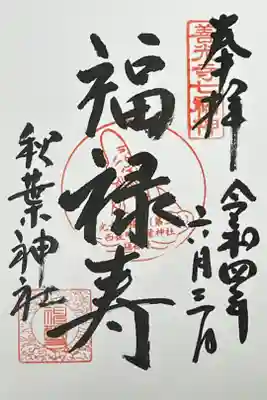 奉拝
善光寺七福神
令和四年
六月三日
福禄寿
秋葉神社